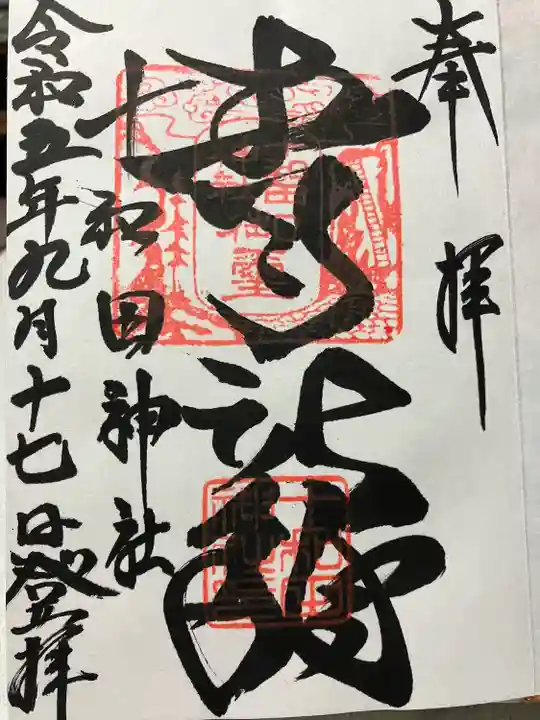 奉拝
青龍
十和田神社
令和五年九月十七日登拝